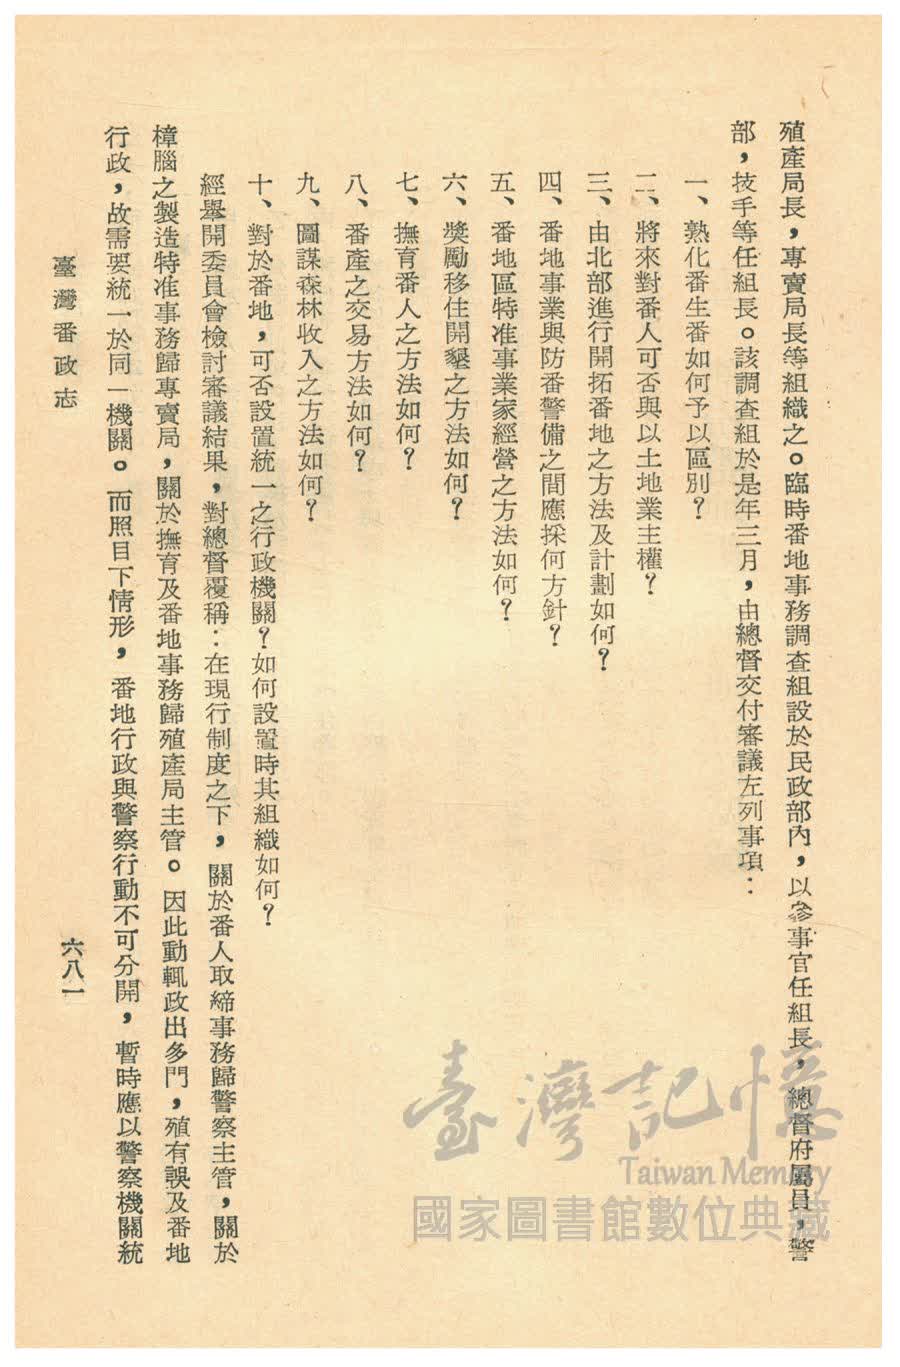 殖產局長，專賣局長等組織之。臨時番地事務調查組設於民政部內，以參事官任組長，總督府屬員，警
部，技手等任組長。該調查組於是年三月，由總督交付審議左列事項：
一、熟化番生番如何予以區別？
二、將來對番人可否與以土地業主權？
三、由北部進行開拓番地之方法及計劃如何？
四、番地事業與防番警備之間應採何方針？
五、番地區特准事業家經營之方法如何？
六、獎勵移住開墾之方法如何？
七、撫育番人之方法如何？
八、番產之交易方法如何？
九、圖謀森林收入之方法如何？
十、對於番地，可否設置統一之行政機關？如何設置時其組織如何？
經舉開委員會檢討審議結果，對總督覆稱：在現行制度之下，關於番人取締事務歸警察主管，關於
樟腦之製造特准事務歸專賣局，關於撫育及番地事務歸殖產局主管。因此動輒政出多門，殖有誤及番地
行政，故需要統一於同一機關。而照目下情形，番地行政與警察行動不可分開，暫時應以警察機關統
臺灣番政志
六八一
臺灣記憶
Taiwan Memory
國家圖書館數位典藏